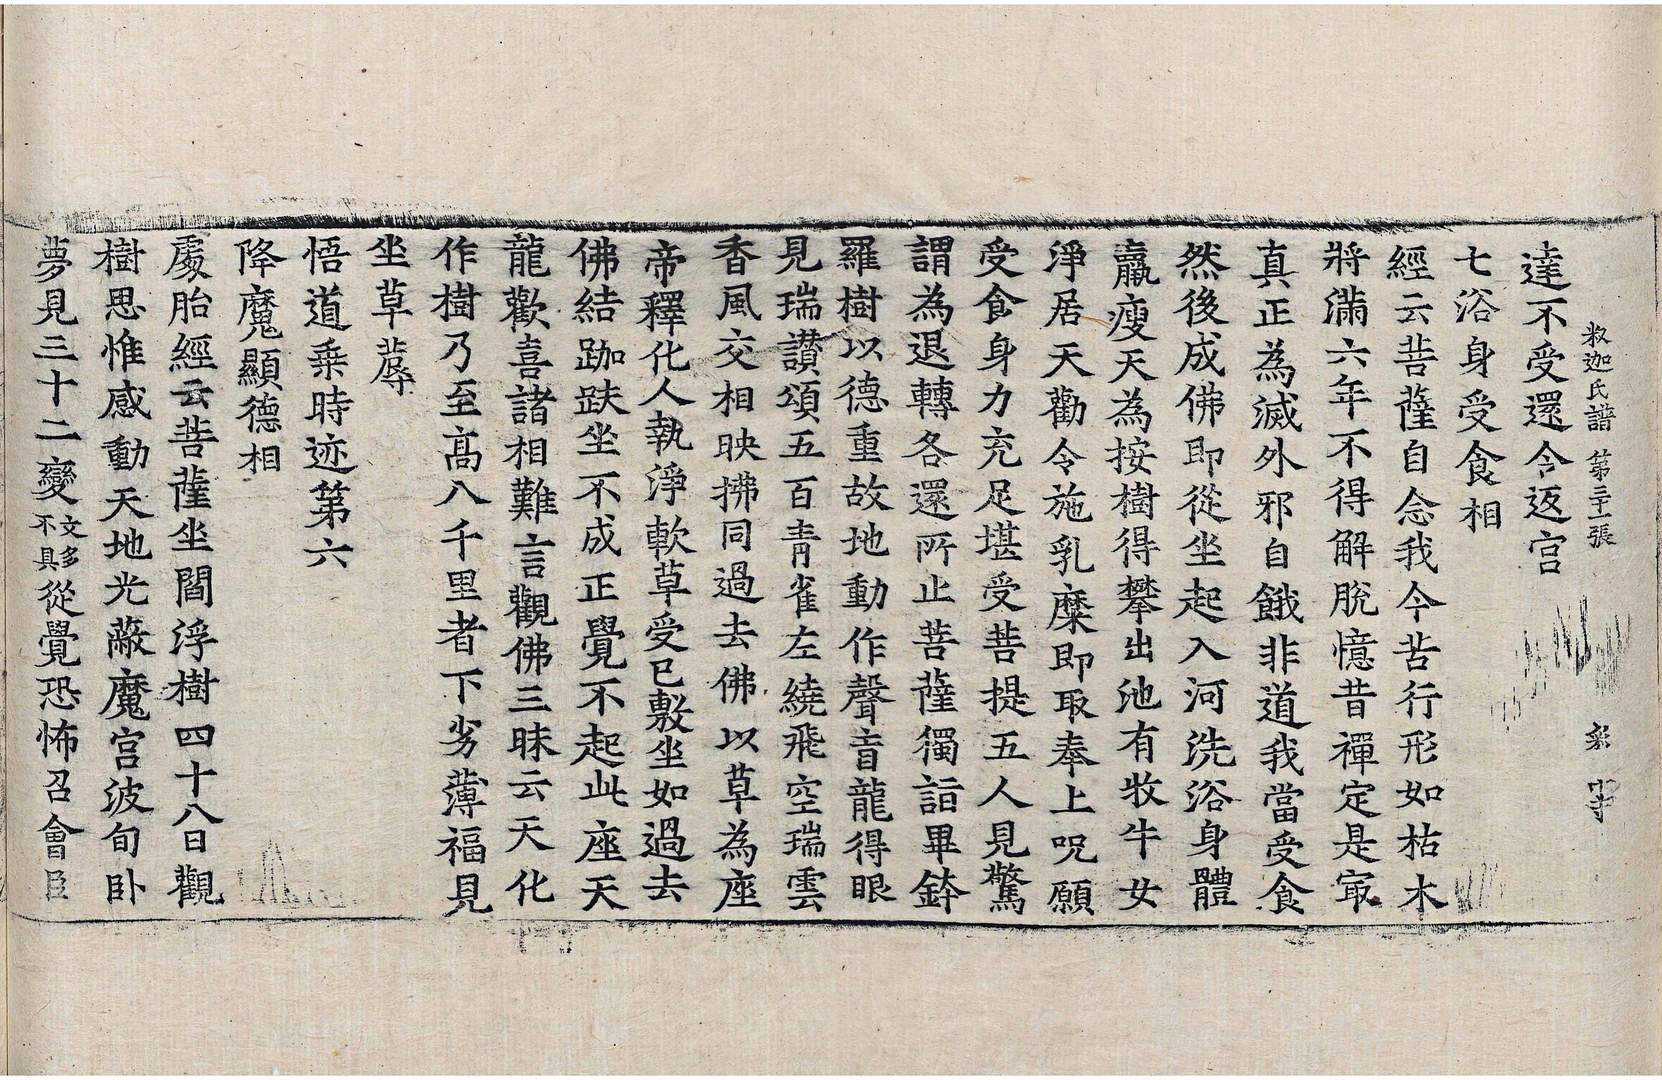 釈迦氏譜 第三十一張 彩 字
達不受還令返宮
七浴身受食相
經云菩薩自念我今苦行形如枯木
將滿六年不得解脫憶昔禪定是㝡
真正為滅外邪自餓非道我當受食
然後成佛即從坐起入河洗浴身體
羸瘦天為按樹得攀出池有牧牛女
淨居天勸令施乳糜即取奉上呪願
受食身力充足堪受菩提五人見驚
謂為退轉各還所止菩薩獨詣畢鉢
羅樹以德重故地動作聲盲龍得眼
見瑞讚頌五百青雀左繞飛空瑞雲
香風交相映拂同過去佛以草為座
帝釋化人執淨軟草受已敷坐如過去
佛結跏趺坐不成正覺不起此座天
龍歡喜諸相難言觀佛三昧云天化
作樹乃至高八千里者下劣薄福見
坐草蓐
悟道乘時迹第六
降魔顯德相
處胎經云菩薩坐閻浮樹四十八日觀
樹思惟感動天地光蔽魔宮波旬卧
夢見三十二變文多不具從覺恐怖召會臣